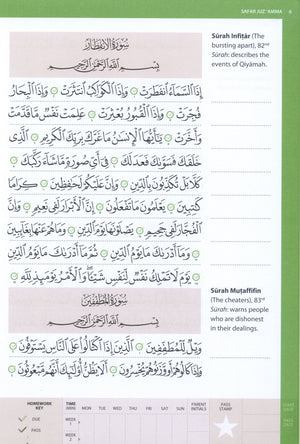 SAFAR JUZ' 'AMMA
6
سُورَةُ الِانْفِطَارِ
بِسْمِ اللَّهِ الرَّحْمَٰنِ الرَّحِيمِ
إِذَا السَّمَاءُ انْفَطَرَتْ وَإِذَا الْكَوَاكِبُ انْتَثَرَتْ وَإِذَا الْبِحَارُ
فُجِّرَتْ وَإِذَا الْقُبُورُ بُعْثِرَتْ عَلِمَتْ نَفْسٌ مَا قَدَّمَتْ
وَأَخَّرَتْ يَا أَيُّهَا الْإِنْسَانُ مَا غَرَّكَ بِرَبِّكَ الْكَرِيمِ الَّذِي
خَلَقَكَ فَسَوَّاكَ فَعَدَلَكَ فِي أَيِّ صُورَةٍ مَا شَاءَ رَكَّبَكَ
كَلَّا بَلْ تُكَذِّبُونَ بِالدِّينِ وَإِنَّ عَلَيْكُمْ لَحَافِظِينَ كِرَامًا
كَاتِبِينَ يَعْلَمُونَ مَا تَفْعَلُونَ إِنَّ الْأَبْرَارَ لَفِي نَعِيمٍ وَإِنَّ
الْفُجَّارَ لَفِي جَحِيمٍ يَصْلَوْنَهَا يَوْمَ الدِّينِ وَمَا هُمْ عَنْهَا بِغَائِبِينَ
وَمَا أَدْرَاكَ مَا يَوْمُ الدِّينِ ثُمَّ مَا أَدْرَاكَ مَا يَوْمُ الدِّينِ
يَوْمَ لَا تَمْلِكُ نَفْسٌ لِنَفْسٍ شَيْئًا وَالْأَمْرُ يَوْمَئِذٍ لِلَّهِ
Sūrah Infiṭār (The
bursting apart), 82nd
Sūrah: describes the
events of Qiyāmah.
سُورَةُ الْمُطَفِّفِينَ
بِسْمِ اللَّهِ الرَّحْمَٰنِ الرَّحِيمِ
وَيْلٌ لِلْمُطَفِّفِينَ الَّذِينَ إِذَا اكْتَالُوا عَلَى النَّاسِ يَسْتَوْفُونَ
وَإِذَا كَالُوهُمْ أَوْ وَزَنُوهُمْ يُخْسِرُونَ أَلَا يَظُنُّ أُولَٰئِكَ أَنَّهُمْ مَبْعُوثُونَ
Sūrah Muṭaffifīn
(The cheaters), 83rd
Sūrah: warns people
who are dishonest
in their dealings.
HOMEWORK KEY
TIME (MIN) MON TUE WED THU FRI SAT SUN
PARENT INITIALS
PASS STAMP
START DATE
DUE
WEEK 1
PASS
WEEK 2
PASS DATE